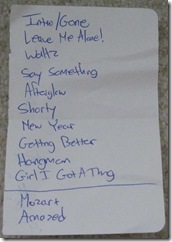 Intro/Gone
Leave Me Alone!
Waltz
Say Something
Afterglow
Shorty
New Year
Getting Better
Hangman
Girl I Got A Thing
Mozart
Amazed